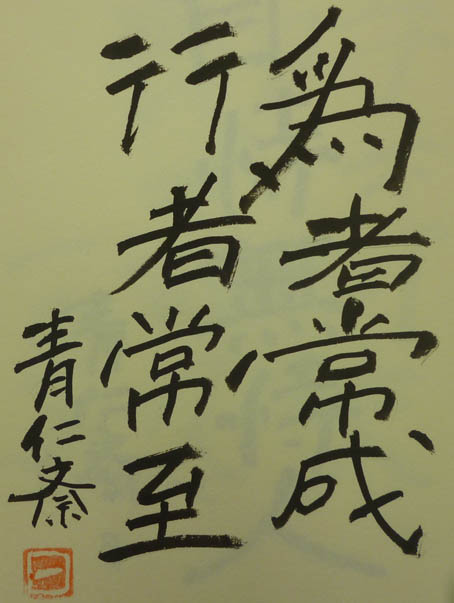 為者常成
行者常至
青仁斎